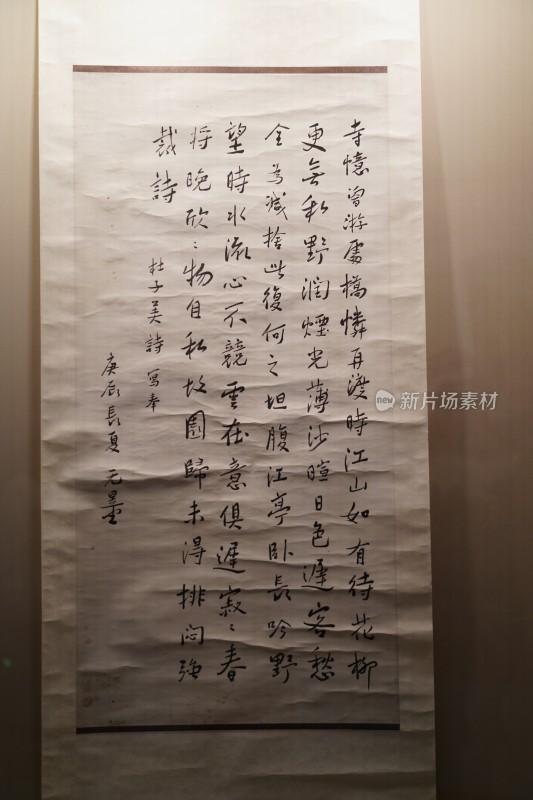 寺憶曾游處橋憐再渡時江山如有待花柳
更無私野潤煙光薄沙暄日色遲客愁
全為減捨此復何之坦腹江亭卧長吟野
望時水流心不競雲在意俱遲寂〻春
將晚欣〻物自私故園歸未得排悶強
裁詩
杜子美詩寫奉
庚辰長夏 元墨
新图网
ixintu.com